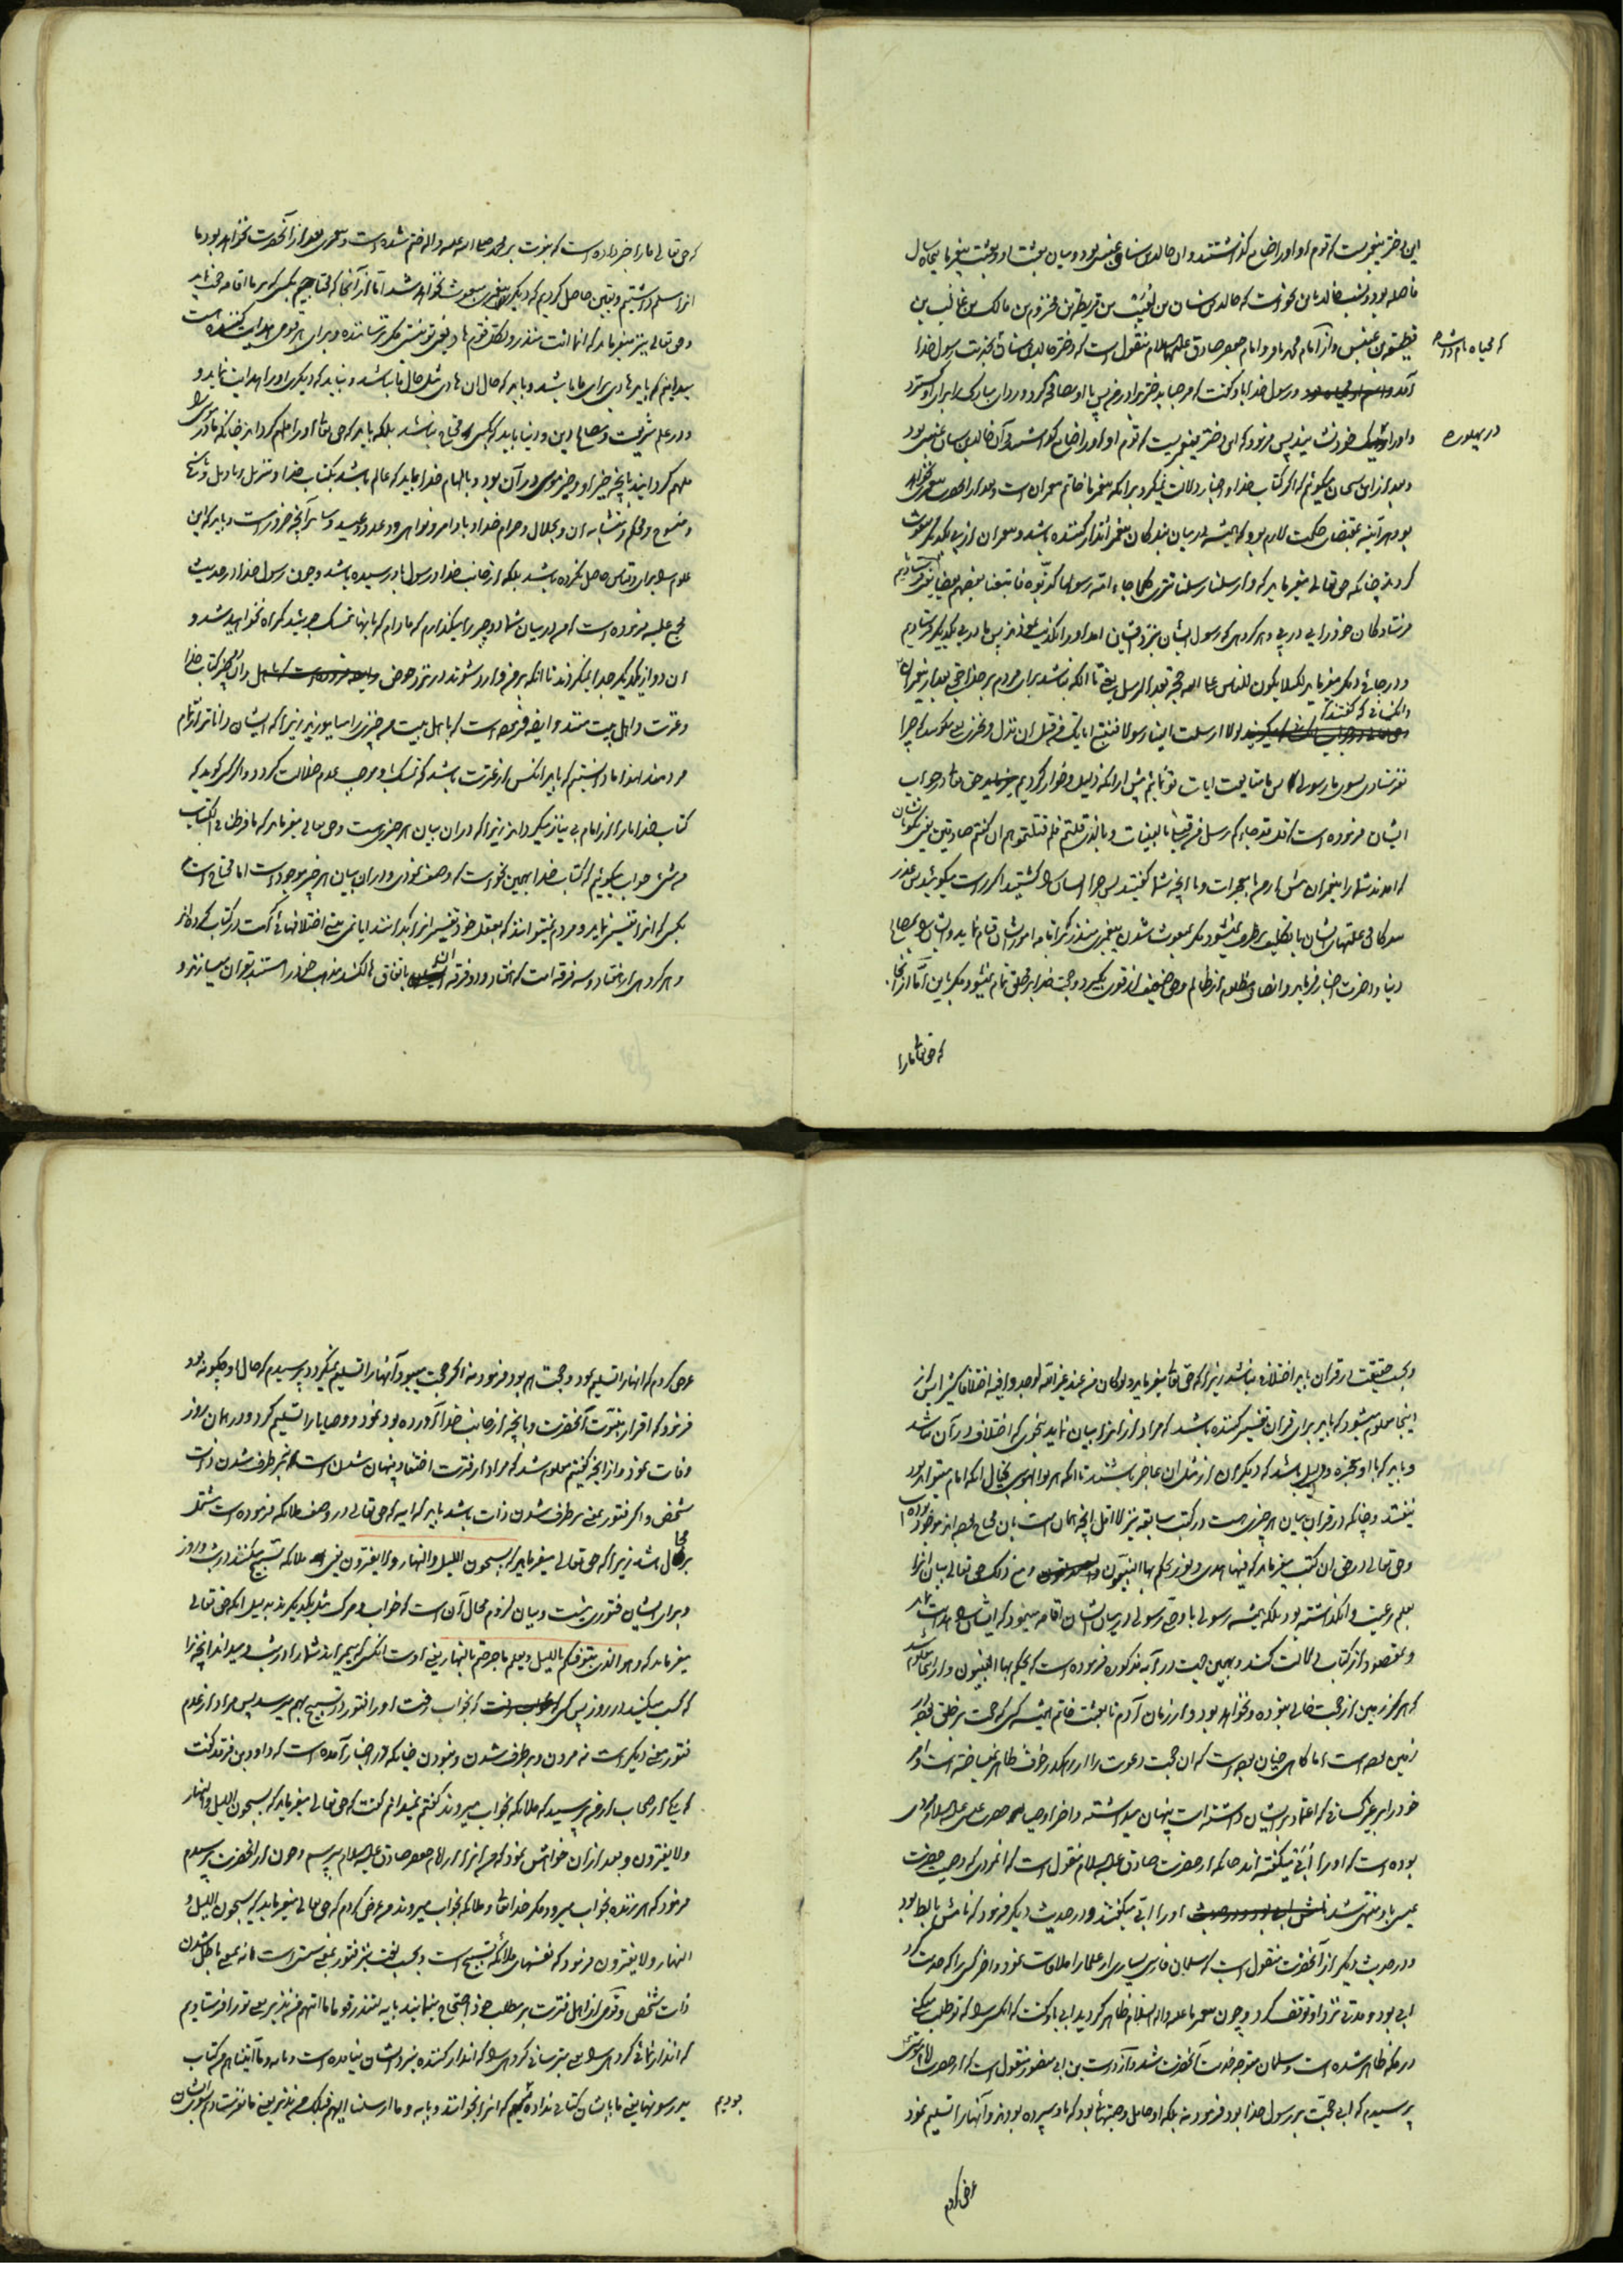 این دختر پیغمبریست که قوم او او را ضایع گذاشتند و ان خالد بن سنان عبسی بود و میان بعثت او و بعثت پیغمبر ما پنجاه سال
فاصله بود و نسب خالد باین نحو است که خالد بن سنان بن بن مخزوم بن مالک بن غالب بن
قطیعة بن عبس و از امام محمد باقر و امام جعفر صادق علیهما السلام منقول است که دختر خالد بن سنان بخدمت رسول خدا
که محیاه نام داشت
آمد و رسول خدا باو گفت که مرحبا ای دختر برادر من پس با او مصافحه کرد و ردای مبارک را برای او گسترد
و او را خود نشانید پس فرمود که این دختر پیغمبریست که قوم او او را ضایع گذاشتند و آن خالد بن سنان عبسی بود
در پهلوی
و بعد از این سخنان میگوئیم که اگر کتاب خدا و اخبار دلالت نمیکرد بر آنکه پیغمبر ما خاتم پیغمبران است و بعد از انحضرت پیغمبری نخواهد
بود هر آینه بمقتضای حکمت لازم بود که همیشه در میان بندگان پیغمبر انذار کننده باشد و پیغمبران از پی یکدیگر مبعوث
کردند چنانکه حق تعالی میفرماید که و ارسلنا رسلنا تترى کلما جاء امة رسولها کذبوه فاتبعنا بعضهم بعضا یعنی فرستادیم
فرستادگان خود را پی در پی و هر گروهی که رسول ایشان بنزد ایشان امد او را تکذیب نمودند پس ما از پی یکدیگر فرستادیم
و در جائی دیگر میفرماید لئلا یکون للناس علی الله حجة بعد الرسل یعنی تا آنکه نباشد برای مردم بر خدا حجتی بعد از پیغمبران
و آنکسانی که گفتند که
لولا ارسلت الینا رسولا فنتبع ایاتک من قبل ان نذل و نخزى یعنی میگویند که چرا
نفرستادی بسوی ما رسولی را پس ما متابعت ایات تو نمائیم پیش از آنکه ذلیل و خوار گردیم حق تعالی در جواب
ایشان فرموده است که قل قد جاءکم رسل من قبلی بالبینات و بالذی قلتم فلم قتلتموهم ان کنتم صادقین یعنی بگو بایشان
که امدند شما را پیغمبران پیش از من با معجزات و با انچه شما گفتید پس چرا ایشان را کشتید اگر راست میگوئید پس عذر
دنیا و اخرت اخبار فرماید و انصاف مظلوم از ظالم و حق ضعیف از قوی بگیرد و حجت خدا بر خلق تمام نمیشود مگر باین اما از آنجا
که حق تعالی ما را
که حق تعالی ما را خبر داده است که نبوت بر محمد صلی الله علیه و اله ختم شده است و پیغمبری بعد از آنحضرت نخواهد بود ما
انرا مسلم داشتیم و یقین حاصل کردیم که دیگر پیغمبری مبعوث نخواهد شد اما از آنجا که محتاجیم بکسی که بر ما اقامه حجت نماید
و حق تعالی نیز میفرماید که انما انت منذر و لکل قوم هاد یعنی تو نیستی مگر ترساننده و برای هر قومی هدایت کننده است
میدانیم که باید هادی برای ما باشد و باید که حال ان هادی مثل حال ما نباشد و نباید که دیگری او را هدایت نماید و
در علم شریعت و مصالح دین و دنیا باید که بکسی محتاج نباشد بلکه باید که حق تعالی او را ملهم گرداند چنانکه مادر موسی را
ملهم گردانید بانچه خیر او و خیر موسی در آن بود و بالهام خدا و باید که عالم باشد بکتاب خدا و تنزیل و تاویل و ناسخ
و منسوخ و محکم و متشابه ان و بحلال و حرام خدا و باوامر و نواهی و وعد و وعید و سایر آنچه ضرور است و باید که این
علوم را برای و قیاس حاصل نکرده باشد بلکه از جانب خدا و رسول باو رسیده باشد و چون رسول خدا در حدیث
مجمع علیه فرموده است که من در میان شما دو چیز را میگذارم که مادام که بانها متمسک باشید گمراه نخواهید شد و
ان دو از یکدیگر جدا نمیگردند تا آنکه بر من وارد شوند در نزد حوض و آن کتاب خدا
و عترت و اهل بیت منند و ایضا فرموده است که باهل بیت من چیزی را میاموزید زیرا که ایشان داناترند از تمام
مردمند لهذا ما دانستیم که باید انکس از عترت باشد که تمسک باو موجب عدم ضلالت گردد و اگر کسی گوید که
کتاب خدا ما را از امام بی نیاز میگرداند زیرا که در ان بیان هر چیزی هست و حق تعالی میفرماید که ما فرطنا فی الکتاب
من شئ جواب میگوئیم که کتاب خدا بهمین نحو است که وصف نمودی و در ان بیان هر چیز موجود است اما محتاج است
بکسی که انرا تفسیر نماید و مردم نمیتوانند که بعقل خود تفسیر انرا بدانند ایا نمی بینی اختلافهای امت را در کتاب کرده اند
و هر گروهی از هفتاد و سه فرقه امت که هفتاد و دو فرقه ایشان باتفاق هالکند مذهب خود را مستند بقران میسازند و
و بحسب حقیقت در قران باید اختلاف نباشد زیرا که حق تعالی میفرماید و لو کان من عند غیر الله لوجدوا فیه اختلافا کثیرا پس از
اینجا معلوم میشود که باید برای قران تفسیر کننده باشد که مراد از انرا بیان نماید بنحوی که اختلاف در آن نباشد
و باید که با او معجزه و دلیل باشد که دیگران از مثل ان عاجز باشند تا آنکه هر بوالهوسی بخیال آنکه امام میتواند بود
نیفتد و چنانکه در قران بیان هر چیزی هست در کتب سابقه نیز
بعلم رعیت وا نگذاشته بود بلکه همیشه رسولی یا وصی رسولی در میان ایشان اقامه مینمود که ایشان را هدایت نماید
و مقصود از کتاب دلالت کند و بهمین جهت در آیه مذکوره فرموده است که یحکم بها النبیون و از اینجا معلوم شد
که هرگز زمین از حجت خالی نبوده و نخواهد بود و از زمان آدم تا بعثت خاتم همیشه کسی که حجت بر خلق
خود را بر غیر کسانی که اعتماد بر ایشان داشته است پنهان میداشته و اخر اوصیای حضرت عیسی علیه السلام مردی
بوده است که او را آبی میگفته اند چنانکه از حضرت صادق علیه السلام منقول است که انمردی که وصیت حضرت
عیسی باو منتهی شد او را آبی میگفتند و در حدیث دیگر فرمود که نامش بالط بود
و در حدیث دیگر از آنحضرت منقول است که سلمان فارسی بسیاری از علما را ملاقات نمود و اخر کسی را که خدمت کرد
ابی بود و مدتی نزد او توقف کرد و چون پیغمبر ما علیه و اله السلام ظاهر گردید ابی باو گفت که انکسی را که تو طلب میکنی
در مکه ظاهر شده است و سلمان متوجه خدمت آنحضرت شد و از درست بن ابی منصور منقول است که از حضرت امام موسی
پرسیدم که ابی حجت بر رسول خدا بود فرمود نه بلکه او حامل وصیتهائی بود که باو سپرده بودند و آنها را تسلیم نمود
عرض کردم
عرض کردم که انها را تسلیم نمود و حجت هم بود فرمود نه اگر حجت میبود آنها را تسلیم نمیکرد پرسیدم که حال او چگونه بود
فرمود که اقرار بنبوت آنحضرت و بانچه از جانب خدا آورده بود نمود و وصایا را تسلیم کرد و در همان روز
وفات نمود و از انچه گفتیم معلوم شد که مراد از فترت اختفا و پنهان شدن است نه بر طرف شدن ذات
شخص و اگر فتور بمعنی بر طرف شدن ذات باشد باید که آیه که حق تعالی در وصف ملائکه فرموده است مشتمل
بر محال باشد زیرا که حق تعالی میفرماید که یسبحون اللیل و النهار و لا یفترون یعنی ملائکه تسبیح میکنند در شب و روز
و برای ایشان فتوری نیست و بیان لزوم محال آن است که خواب و مرگ مثل یکدیگرند بدلیل آنکه حق تعالی
میفرماید که و هو الذی یتوفیکم باللیل و یعلم ما جرحتم بالنهار یعنی اوست انکسی که میمیراند شما را در شب و میداند انچه را
که کسب میکنید در روز پس کسی که بخواب رفت او را فتور در تسبیح بهم میرسد پس مراد از عدم
فتور معنی دیگر است نه مردن و بر طرف شدن و نبودن چنانکه در اخبار آمده است که داود بن فرقد گفت
که یکی از اصحاب از من پرسید که ملائکه بخواب میروند گفتم نمیدانم گفت که حق تعالی میفرماید که یسبحون اللیل و النهار
و لا یفترون و بعد از ان خواهش نمود که من انرا از امام جعفر صادق علیه السلام بپرسم و چون از انحضرت پرسیدم
فرمود که هر زنده بخواب میرود مگر خدای تعالی و ملائکه بخواب میروند من عرض کردم که حق تعالی میفرماید که یسبحون اللیل و
النهار و لا یفترون فرمود که نفسهای ملائکه تسبیح است و بحسب لغت نیز فتور بمعنی سستی است نه بمعنی باطل شدن
ذات شخص و قومی از اهل فترت بر مطلب خود احتجاج مینمایند بآیه لتنذر قوما ما اتیهم من نذیر یعنی تو را فرستادیم
که انذار نمائی گروهی را یعنی بترسانی گروهی را که انذار کننده بنزد ایشان نیامده است و بآیه و ما آتیناهم من کتب
یدرسونها یعنی ما بایشان کتابی نداده که انرا بخوانند و بآیه و ما ارسلنا الیهم قبلک من نذیر یعنی ما نفرستادیم بسوی ایشان
بودیم